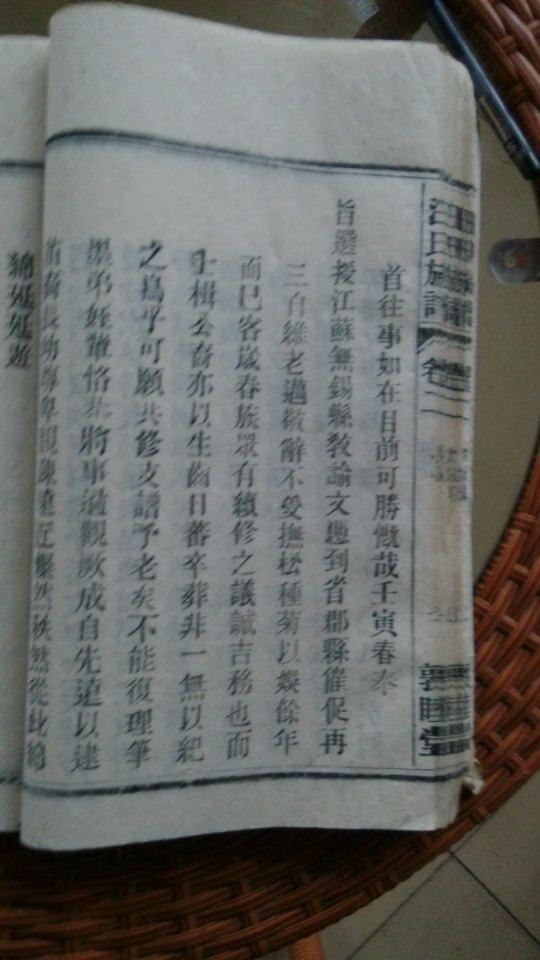 汪氏族譜 卷二 敦睦堂
首往事如在目前可勝慨哉壬寅春奉
旨選授江蘇無錫縣教諭文憑到省郡縣催促再
三自維老邁敬辭不受撫松種菊以娛餘年
而已客歲春族眾有續修之議誠吉務也而
士楫公裔亦以生齒日蕃卒葬非一無以紀
之烏乎可願共修支譜予老矣不能復理筆
墨弟姪輩恪恭將事觀厥成自先遠以逮
苗裔長幼尊卑親疎遠近燦然秩然從此綿